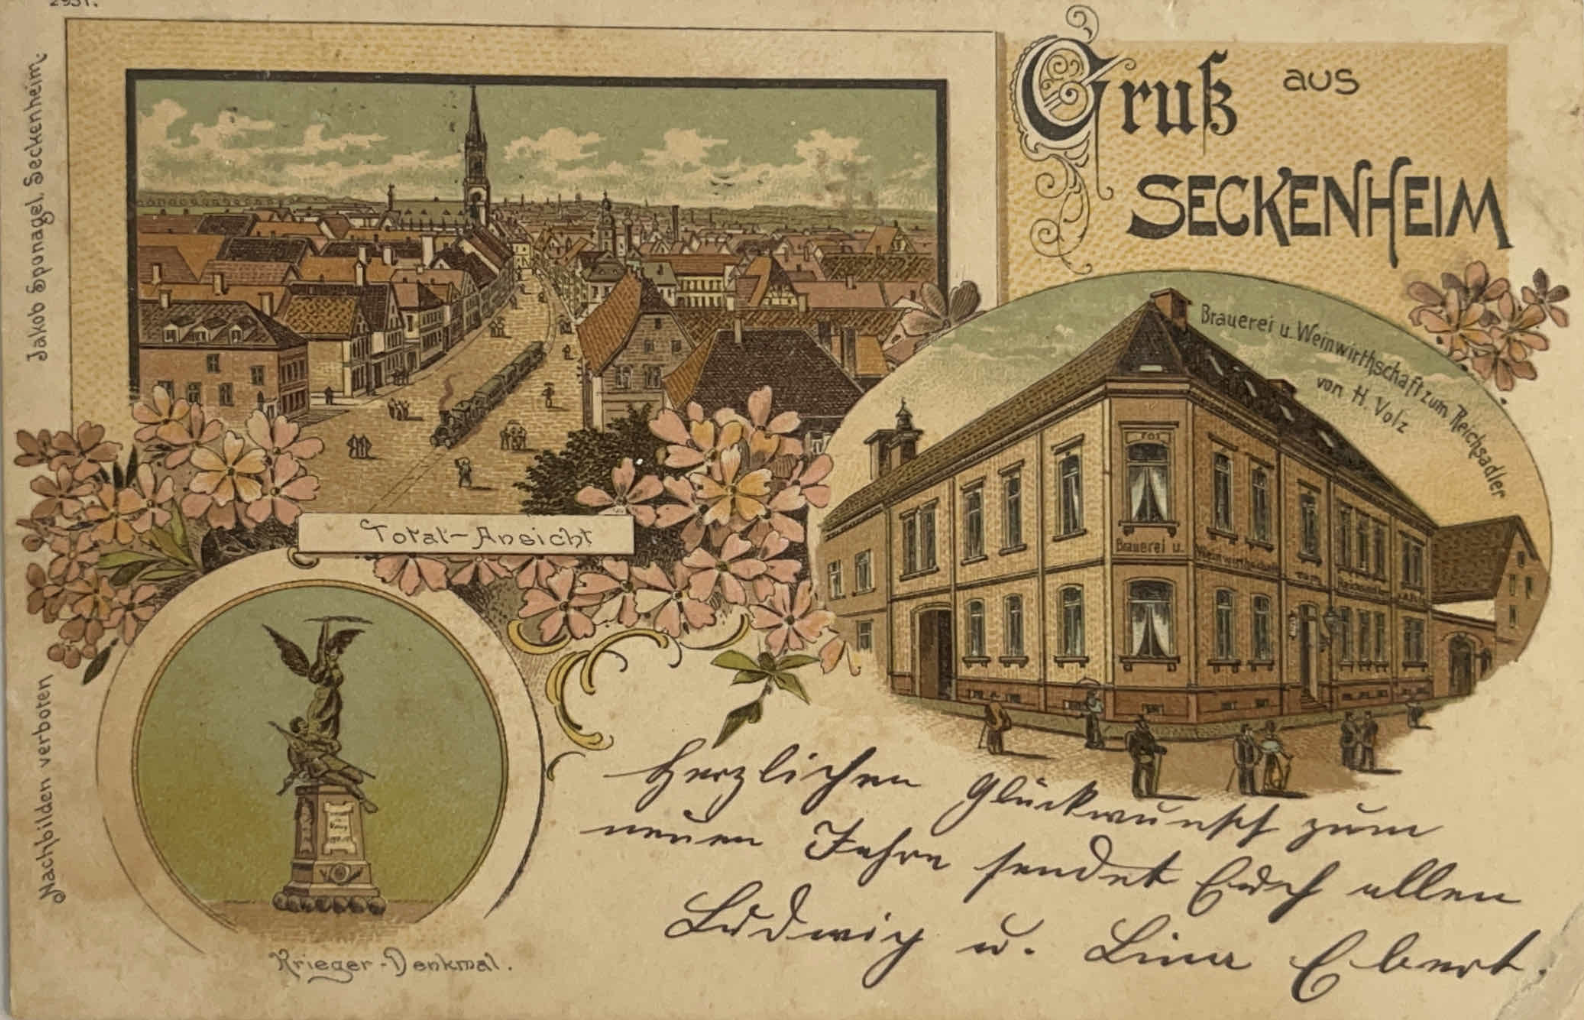 2931.
Gruß aus
SECKENHEIM
Jakob Sponagel, Seckenheim.
Brauerei u. Weinwirthschaft zum Reichsadler
von H. Volz
Brauerei u. Weinwirthschaft zum
Total-Ansicht
Nachbilden verboten
Krieger-Denkmal.
Herzlichen Glückwunsch zum
neuen Jahre sendet Euch allen
Ludwig u. Lina Ebert.